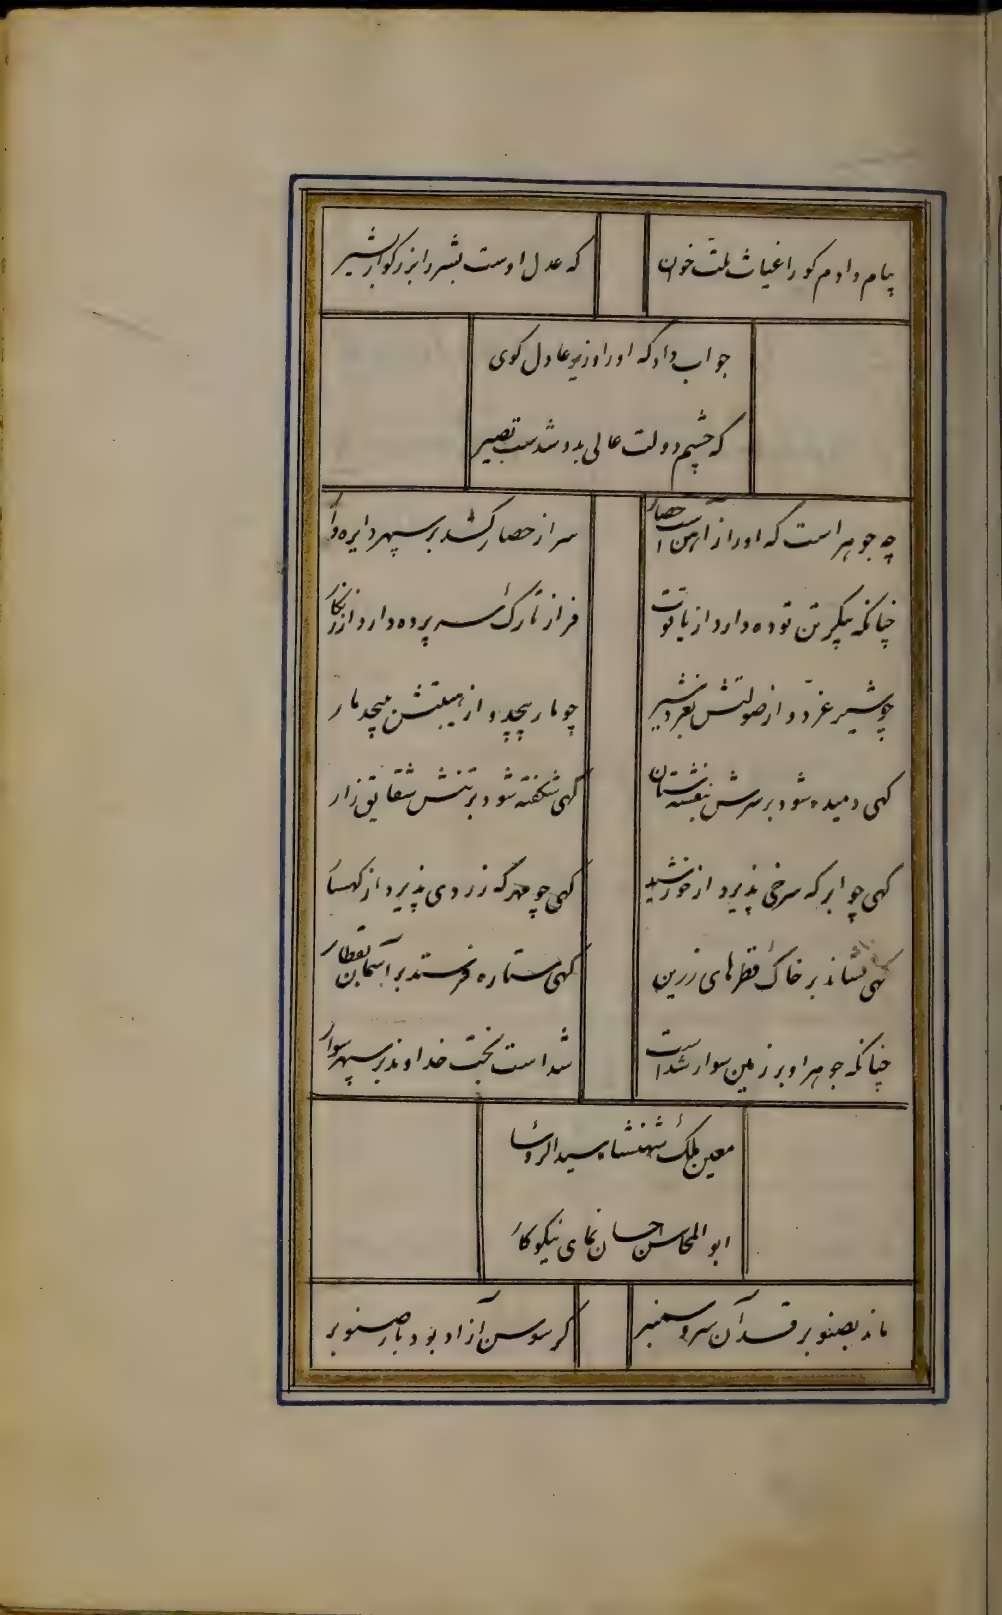 پیام دادم کو را غیاث ملت خوان
که عدل اوست بشر را بزرکوار بشیر
جواب داد که او را وزیر عادل کوی
که چشم دولت عالی بدو شدست بصیر
چه جوهر است که او را ز آهن است حصار
سر از حصار کشد بر سپهر دایره وار
چنانکه پیکر تن توده دارد از یاقوت
فراز تارک سر پرده دارد از زنکار
چو شیر غرّد و از صولتش بغرد شیر
چو مار پیچد و از هیبتش بپیچد مار
کهی دمیده شود بر سرش بنفشه ستان
کهی شکفته شود بر تنش شقایق زار
کهی چو ابر که سرخی پذیرد از خورشید
کهی چو مهر که زردی پذیرد از کهسار
کهی فشاند بر خاک قطرهای زرین
کهی ستاره فرستد بر آسمان بقطار
چنانکه جوهر او بر زمین سوار شدا است
شدا است بخت خداوند بر سپهر سوار
معین ملک شهنشاه سید الروسا
ابو المحاسن احسان نمای نیکوکار
ماند بصنوبر قد آن سرو سمنبر
کر سوسن آزاد بود بار صنوبر